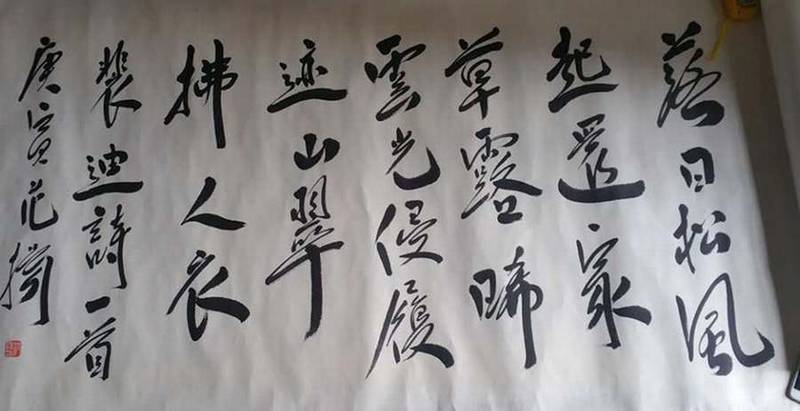 落日松風
起還家
草露晞
雲光侵履
迹山翠
拂人衣
裴迪詩一首
庚寅范扬